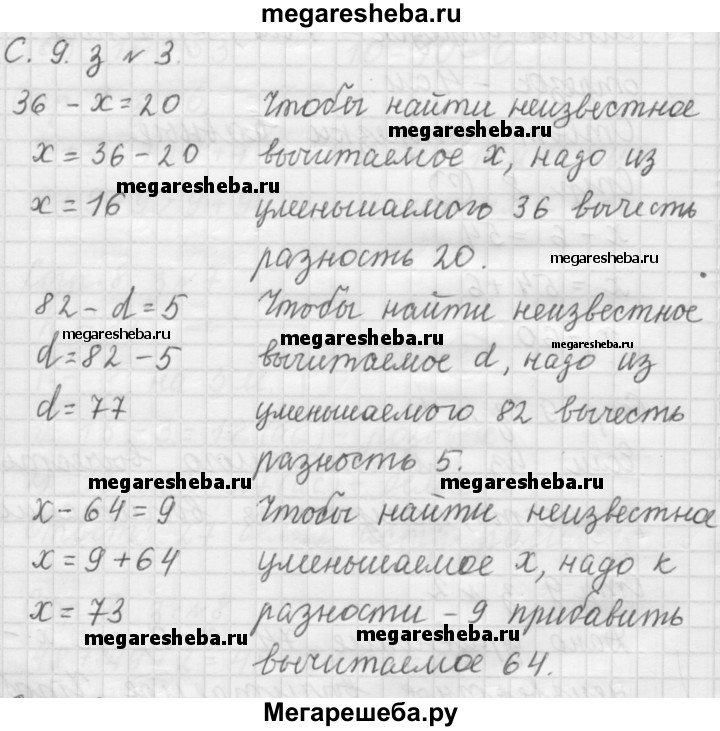 megaresheba.ru
С. 9. з № 3.
36 - x = 20 Чтобы найти неизвестное
megaresheba.ru
x = 36 - 20 вычитаемое x, надо из
megaresheba.ru
x = 16 уменьшаемого 36 вычесть
разность 20. megaresheba.ru
82 - d = 5 Чтобы найти неизвестное
megaresheba.ru megaresheba.ru megaresheba.ru
d = 82 - 5 вычитаемое d, надо из
d = 77 уменьшаемого 82 вычесть
разность 5.
megaresheba.ru megaresheba.ru
x - 64 = 9 Чтобы найти неизвестное
x = 9 + 64 уменьшаемое x, надо к
x = 73 разности - 9 прибавить
megaresheba.ru megaresheba.ru
вычитаемое 64.
Мегарешеба.ру